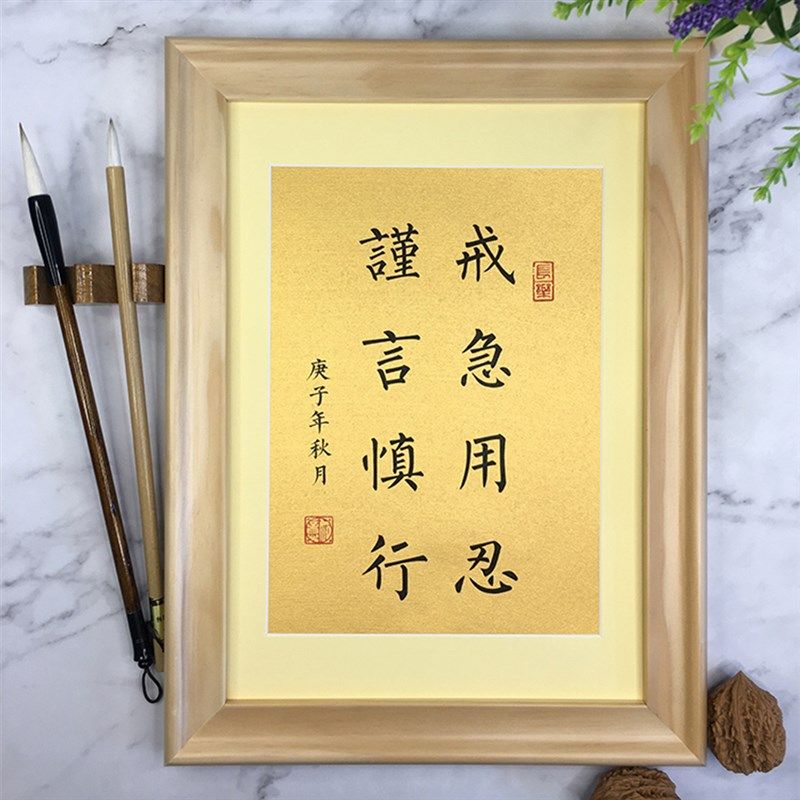 長樂
戒急用忍
謹言慎行
庚子年秋月